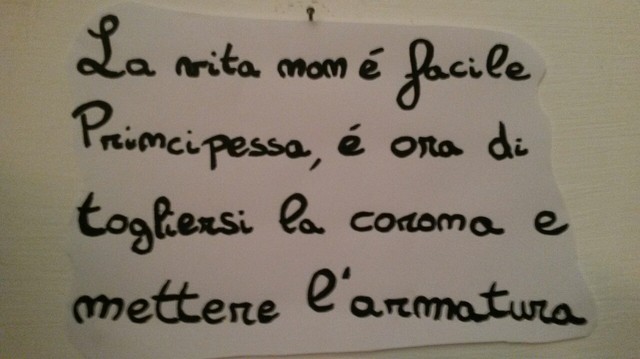 La vita non é facile
Principessa, é ora di
togliersi la corona e
mettere l'armatura